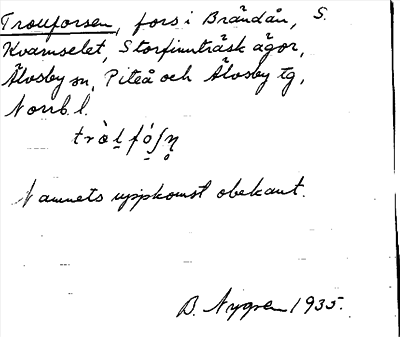 Trollforsen, fors i Brändån, S.
Kvarnselet, Storfinnträsk ägor,
Älvsby sn, Piteå och Älvsby tg,
Norrb. l.
Namnets uppkomst obekant.
B. Nygren 1935.